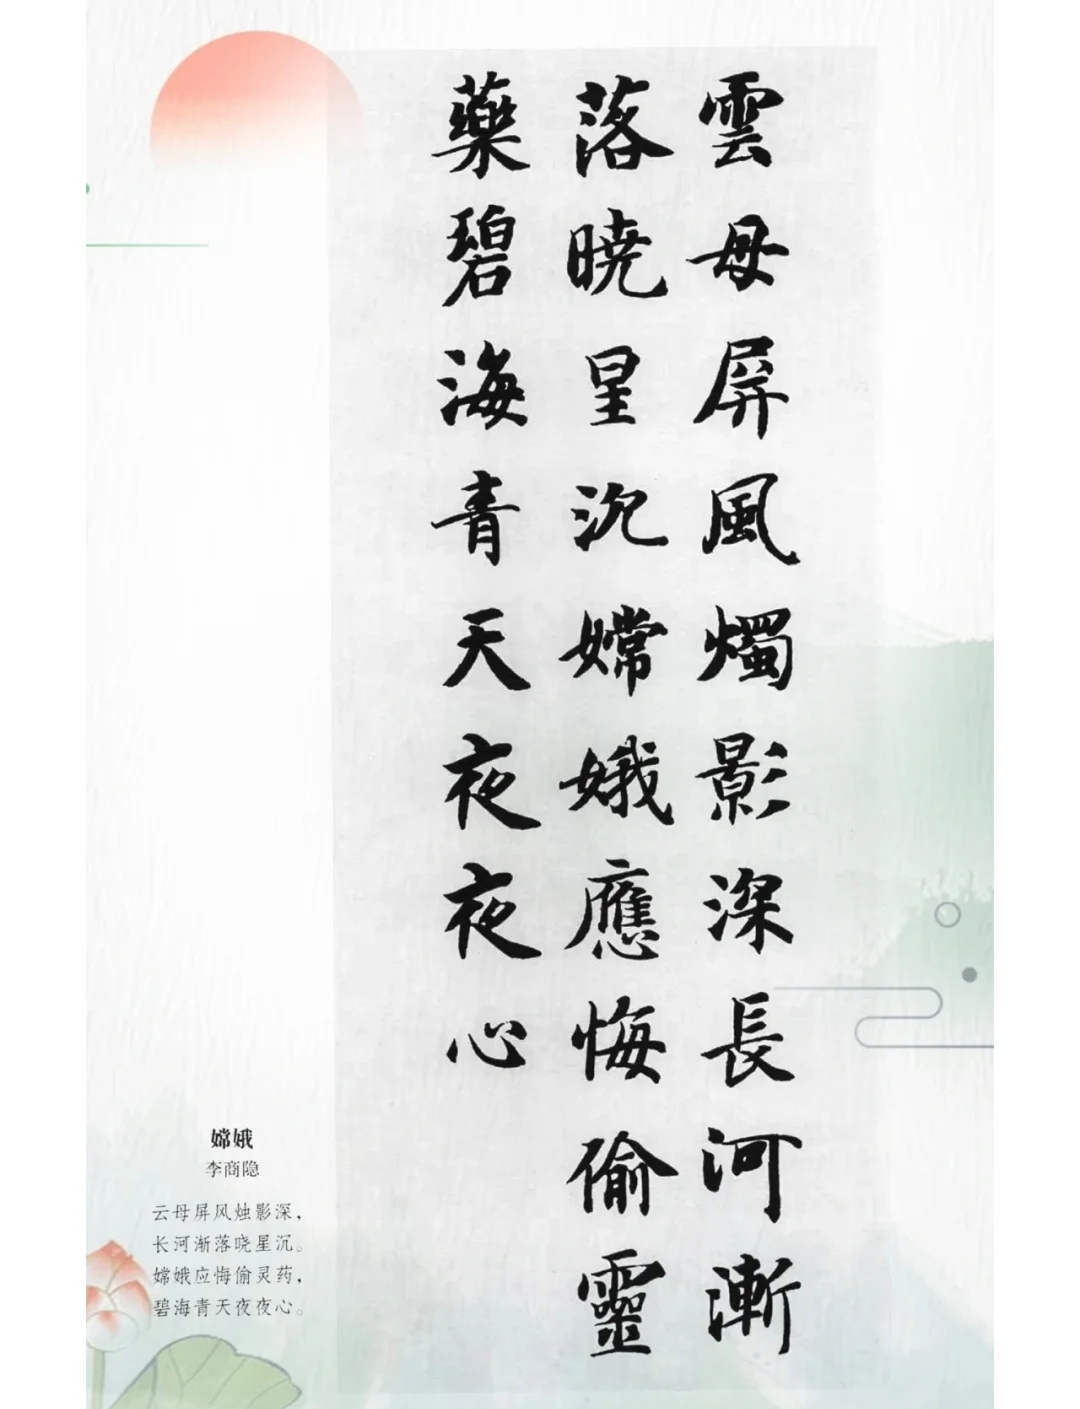 雲母屏風燭影深長河漸
落曉星沉嫦娥應悔偷靈
藥碧海青天夜夜心
嫦娥
李商隐
云母屏风烛影深，
长河渐落晓星沉。
嫦娥应悔偷灵药，
碧海青天夜夜心。